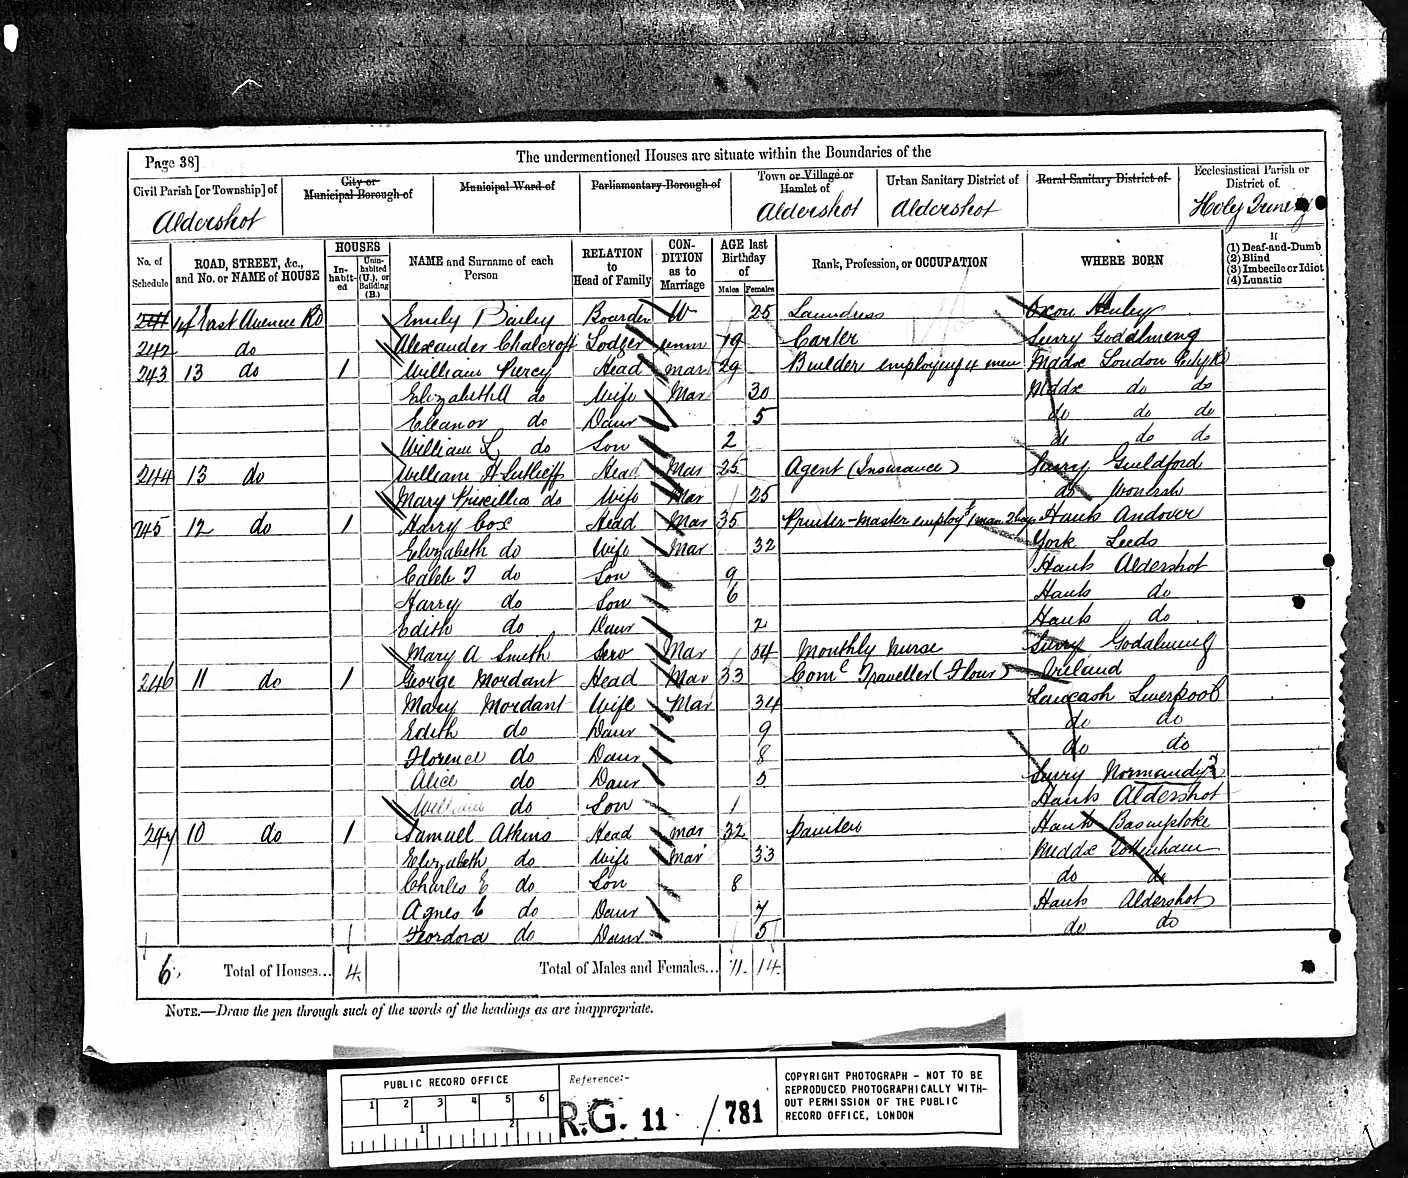 Page 38]
The undermentioned Houses are situate within the Boundaries of the
Civil Parish [or Township] of
City or Municipal Borough of
Municipal Ward of
Parliamentary Borough of
Town or Village or Hamlet of
Urban Sanitary District of
Rural Sanitary District of
Ecclesiastical Parish or District of
Aldershot Aldershot Aldershot Holy Trinity
No. of Schedule
ROAD, STREET, &c., and No. or NAME of HOUSE
HOUSES
In-habit-ed
Unin-habited (U.), or Building (B.)
NAME and Surname of each Person
RELATION to Head of Family
CON-DITION as to Marriage
AGE last Birthday of
Males Females
Rank, Profession, or OCCUPATION
WHERE BORN
If
(1) Deaf-and-Dumb
(2) Blind
(3) Imbecile or Idiot
(4) Lunatic
241 14 East Avenue Rd Emily Bailey Boarder W 25 Laundress Oxon Henley
242 do Alexander Chalcroft Lodger unm 19 Carter Surry Godalming
243 13 do 1 William Piercy Head mar 29 Builder employing 4 men Middx London
Elizabeth A do Wife Mar 30 Middx do do
Eleanor do Daur 5 do do do
William L do Son 2 do do do
244 13 do William H Sutlieff Head Mar 25 Agent (Insurance) Surry Guildford
Mary Priscilla do Wife Mar 25 do Wonersh
245 12 do 1 Harry Cox Head Mar 35 Printer-Master employg 1 man 2 boys Hants Andover
Elizabeth do Wife Mar 32 York Leeds
Caleb T do Son 9 Hants Aldershot
Harry do Son 6 Hants do
Edith do Daur 2 Hants do
Mary A Smith Serv Mar 54 Monthly Nurse Surry Godalming
246 11 do 1 George Mordant Head Mar 33 Coml Traveller (Flour) Ireland
Mary Mordant Wife Mar 34 Lancash Liverpool
Edith do Daur 9 do do
Florence do Daur 8 do do
Alice do Daur 5 Surry Normandy
William do Son 1 Hants Aldershot
247 10 do 1 Samuel Atkins Head mar 32 Painter Hants Basingstoke
Elizabeth do Wife Mar 33 Middx Tottenham
Charles E do Son 8 do do
Agnes E do Daur 7 Hants Aldershot
do Daur 5 do do
6 Total of Houses... 4 Total of Males and Females... 11 14
NOTE.—Draw the pen through such of the words of the headings as are inappropriate.
PUBLIC RECORD OFFICE
1 2 3 4 5 6
1 2
Reference:-
R.G. 11 / 781
COPYRIGHT PHOTOGRAPH - NOT TO BE
REPRODUCED PHOTOGRAPHICALLY WITH-
OUT PERMISSION OF THE PUBLIC
RECORD OFFICE, LONDON